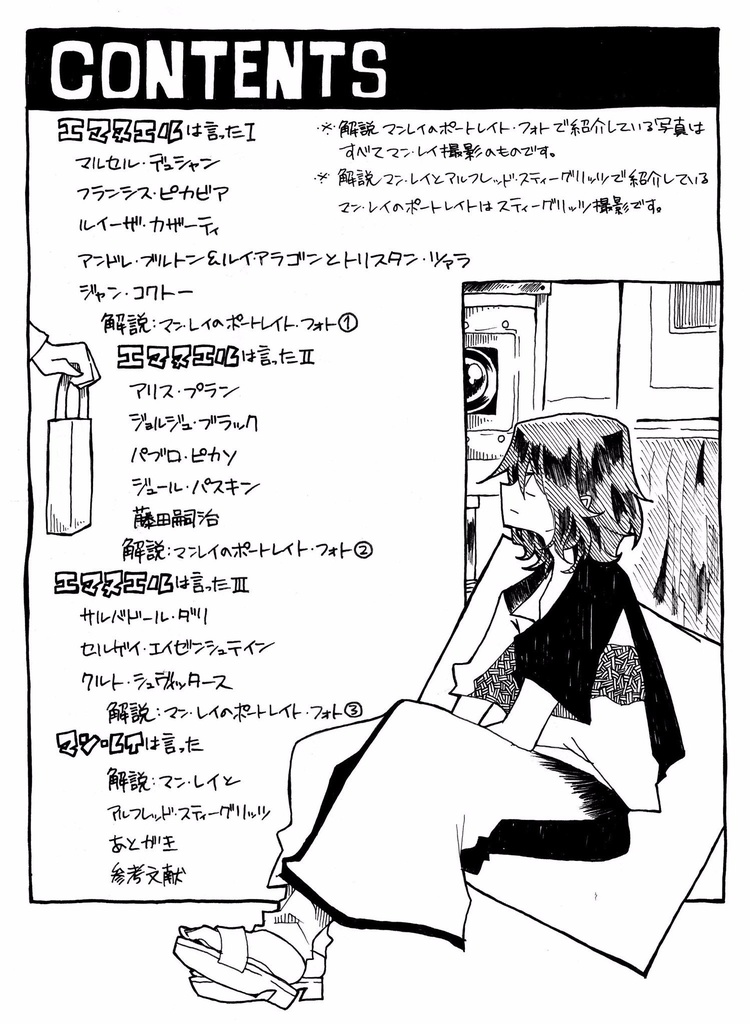 CONTENTS
エマヌエルは言ったⅠ
マルセル・デュシャン
フランシス・ピカビア
ルイーザ・カザーティ
アンドレ・ブルトン&ルイ・アラゴンとトリスタン・ツァラ
ジャン・コクトー
解説:マン・レイのポートレイト・フォト①
エマヌエルは言ったⅡ
アリス・プラン
ジョルジュ・ブラック
パブロ・ピカソ
ジュール・パスキン
藤田嗣治
解説:マン・レイのポートレイト・フォト②
エマヌエルは言ったⅢ
サルバドール・ダリ
セルゲイ・エイゼンシュテイン
クルト・シュヴィッタース
解説:マン・レイのポートレイト・フォト③
マン・レイは言った
解説:マン・レイと
アルフレッド・スティーグリッツ
あとがき
参考文献
※解説マン・レイのポートレイト・フォトで紹介している写真は
すべてマン・レイ撮影のものです。
※解説マン・レイとアルフレッド・スティーグリッツで紹介している
マン・レイのポートレイトはスティーグリッツ撮影です。